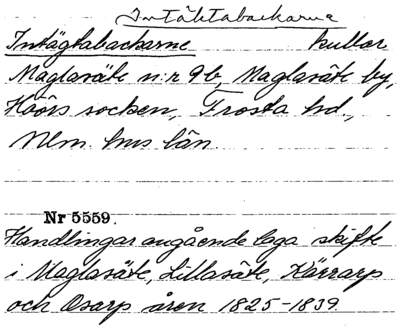 Intäktabackarne
Intägtabackarne kullar
Maglasäte n:r 9b, Maglasäte by,
Höörs socken, Frosta hd.,
Mlm. hus län.
Nr 5559.
Handlingar angående laga skifte
i Maglasäte, Lillasäte, Kärrarp
och Osarp åren 1825-1839.